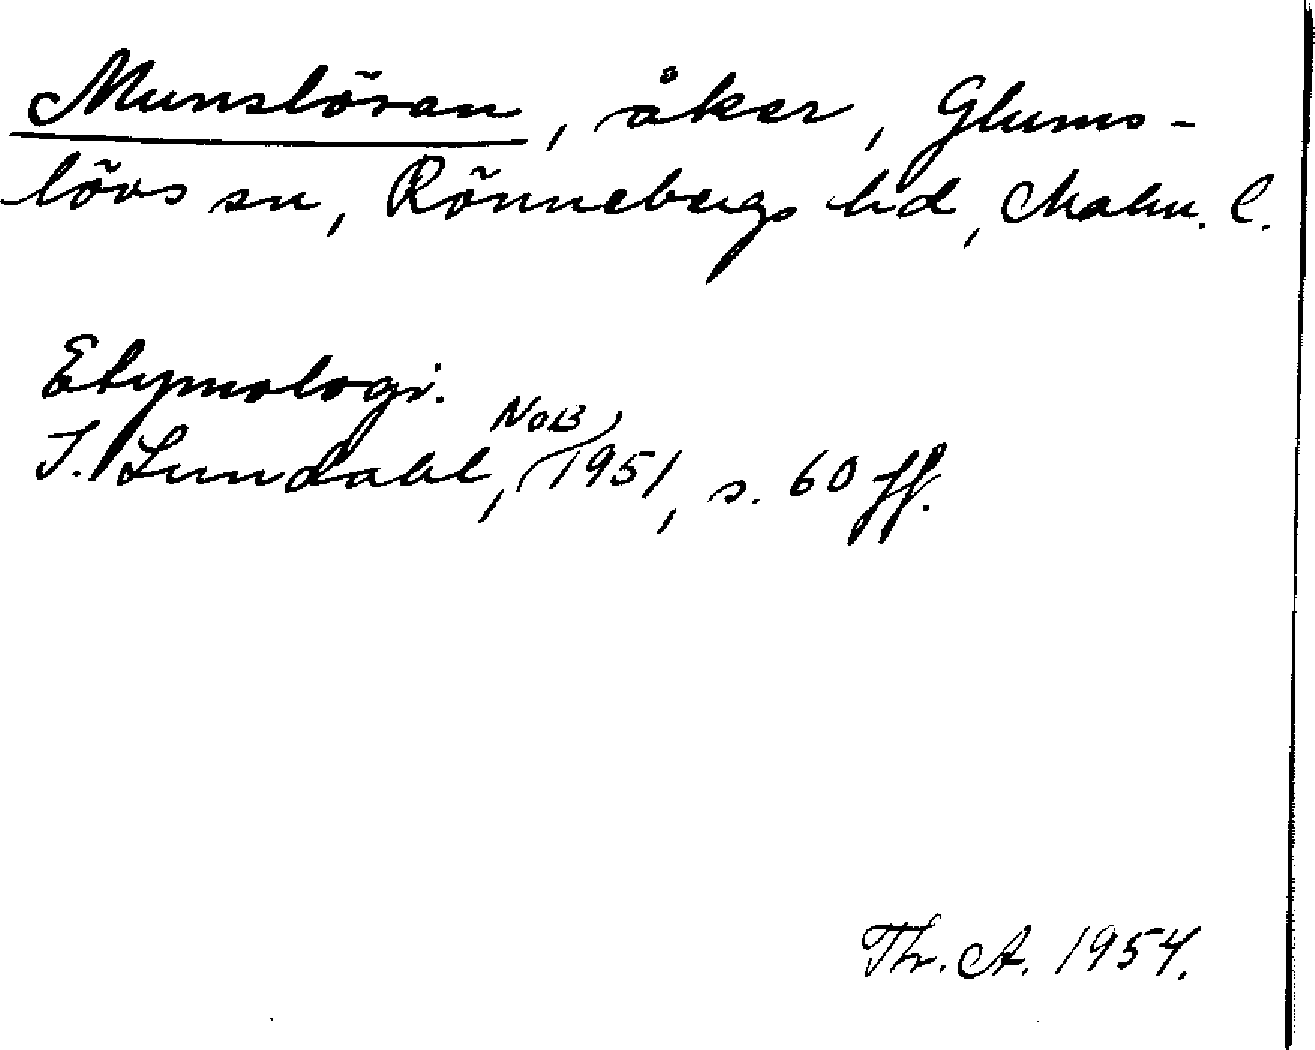 Munslövan, åker, Glums-
lövs sn, Rönnebergs hd, Malm. l.
Etymologi.
I. Lundahl, NoB 1951, s. 60 ff.
Th. A. 1954.